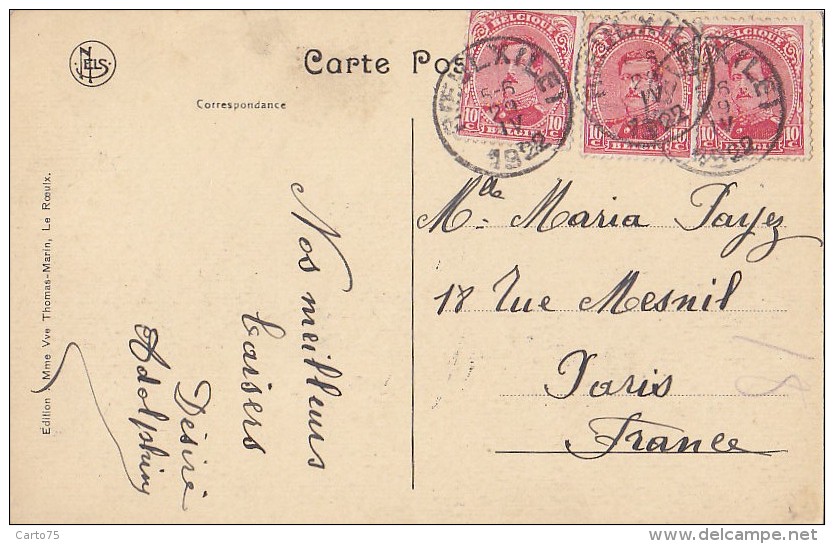 NELS
Carte Pos
Correspondance
BELGIQUE
10 C 10 C
BELGIË
10 C 10 C
BELGIË
10 C
BELGIË
5-6
29
IV
1922
1922
1922
Mlle Maria Payez
18 Rue Mesnil
Paris
France
18
Nos meilleurs
baisers
Désiré
Adolphine
Edition : Mme Vve Thomas-Marin, Le Rœulx.
Carto75
www.delcampe.net